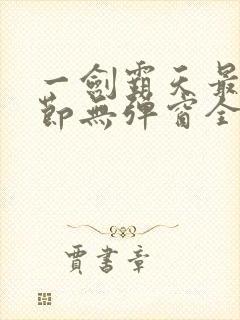 一劍霸天最
節無彈窗全
賈書章